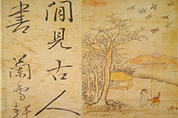 閒見古人
書
蘭雪軒